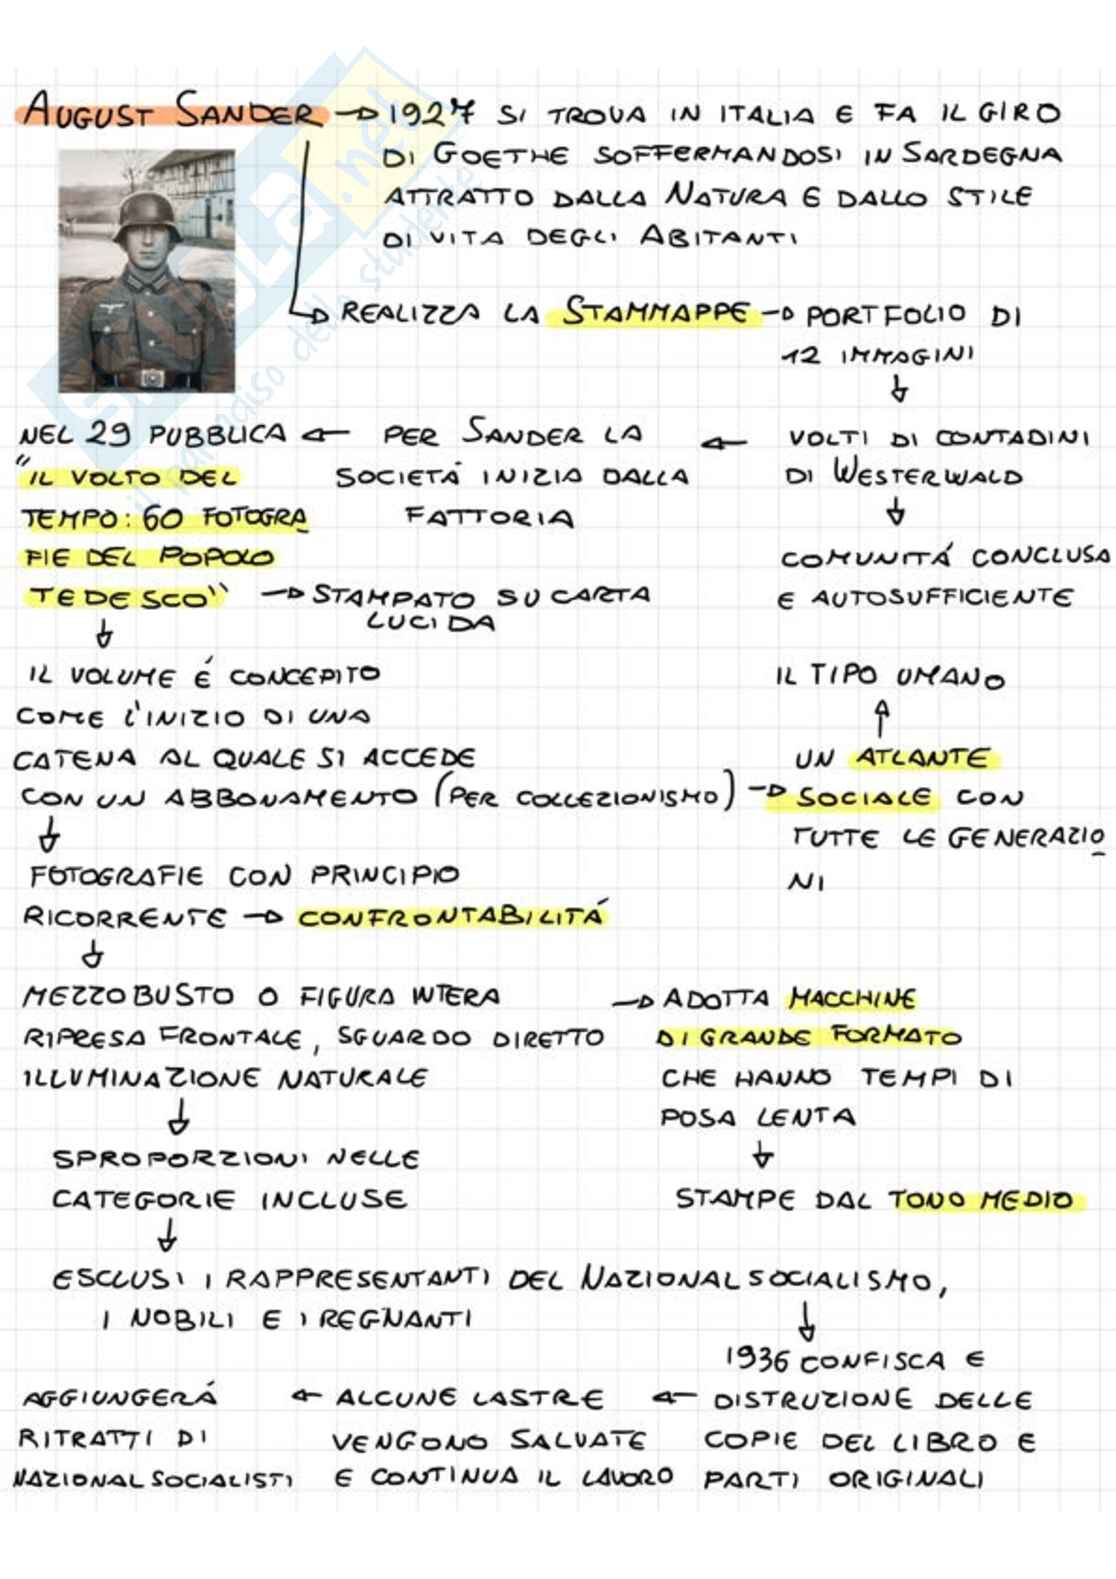 AUGUST SANDER → 1927 SI TROVA IN ITALIA E FA IL GIRO
DI GOETHE SOFFERMANDOSI IN SARDEGNA
ATTRATTO DALLA NATURA E DALLO STILE
DI VITA DEGLI ABITANTI
→ REALIZZA LA STAMMAPPE → PORTFOLIO DI
12 IMMAGINI
↓
VOLTI DI CONTADINI
DI WESTERWALD
↓
COMUNITÁ CONCLUSA
E AUTOSUFFICIENTE
← PER SANDER LA
SOCIETÁ INIZIA DALLA
FATTORIA
NEL 29 PUBBLICA ←
"IL VOLTO DEL
TEMPO: 60 FOTOGRA
FIE DEL POPOLO
TEDESCO" → STAMPATO SU CARTA
LUCIDA
↓
IL VOLUME É CONCEPITO
COME L'INIZIO DI UNA
CATENA AL QUALE SI ACCEDE
CON UN ABBONAMENTO (PER COLLEZIONISMO) →
UN ATLANTE
SOCIALE CON
TUTTE LE GENERAZIO
NI
↑
IL TIPO UMANO
↓
FOTOGRAFIE CON PRINCIPIO
RICORRENTE → CONFRONTABILITÁ
↓
MEZZOBUSTO O FIGURA INTERA
RIPRESA FRONTALE, SGUARDO DIRETTO
ILLUMINAZIONE NATURALE
→ ADOTTA MACCHINE
DI GRANDE FORMATO
CHE HANNO TEMPI DI
POSA LENTA
↓
STAMPE DAL TONO MEDIO
↓
SPROPORZIONI NELLE
CATEGORIE INCLUSE
↓
ESCLUSI I RAPPRESENTANTI DEL NAZIONALSOCIALISMO,
I NOBILI E I REGNANTI
↓
1936 CONFISCA E
DISTRUZIONE DELLE
COPIE DEL LIBRO E
PARTI ORIGINALI
← ALCUNE LASTRE
VENGONO SALVATE
E CONTINUA IL LAVORO
← AGGIUNGERÁ
RITRATTI DI
NAZIONALSOCIALISTI
SKUOLA.net
il paradiso dello studente